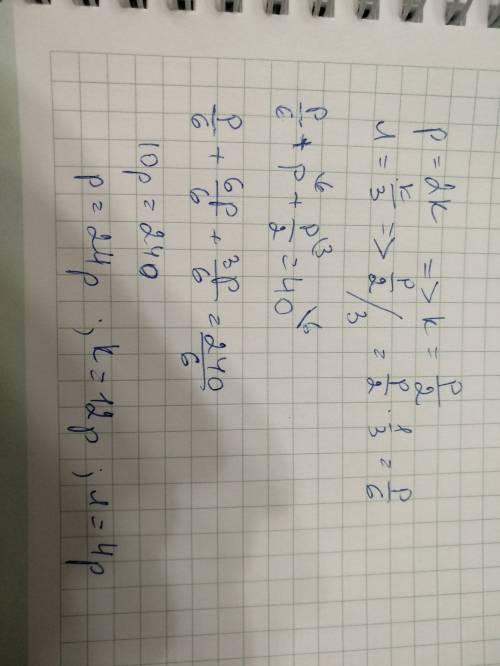 p = 2k => k = p/2
и = k/3 => p/2 / 3 = p/2 · 1/3 = p/6
p/6 + p\6 + p/2\3 = 40\6
p/6 + 6p/6 + 3p/6 = 240/6
10p = 240
p = 24р ; k = 12р ; и = 4р